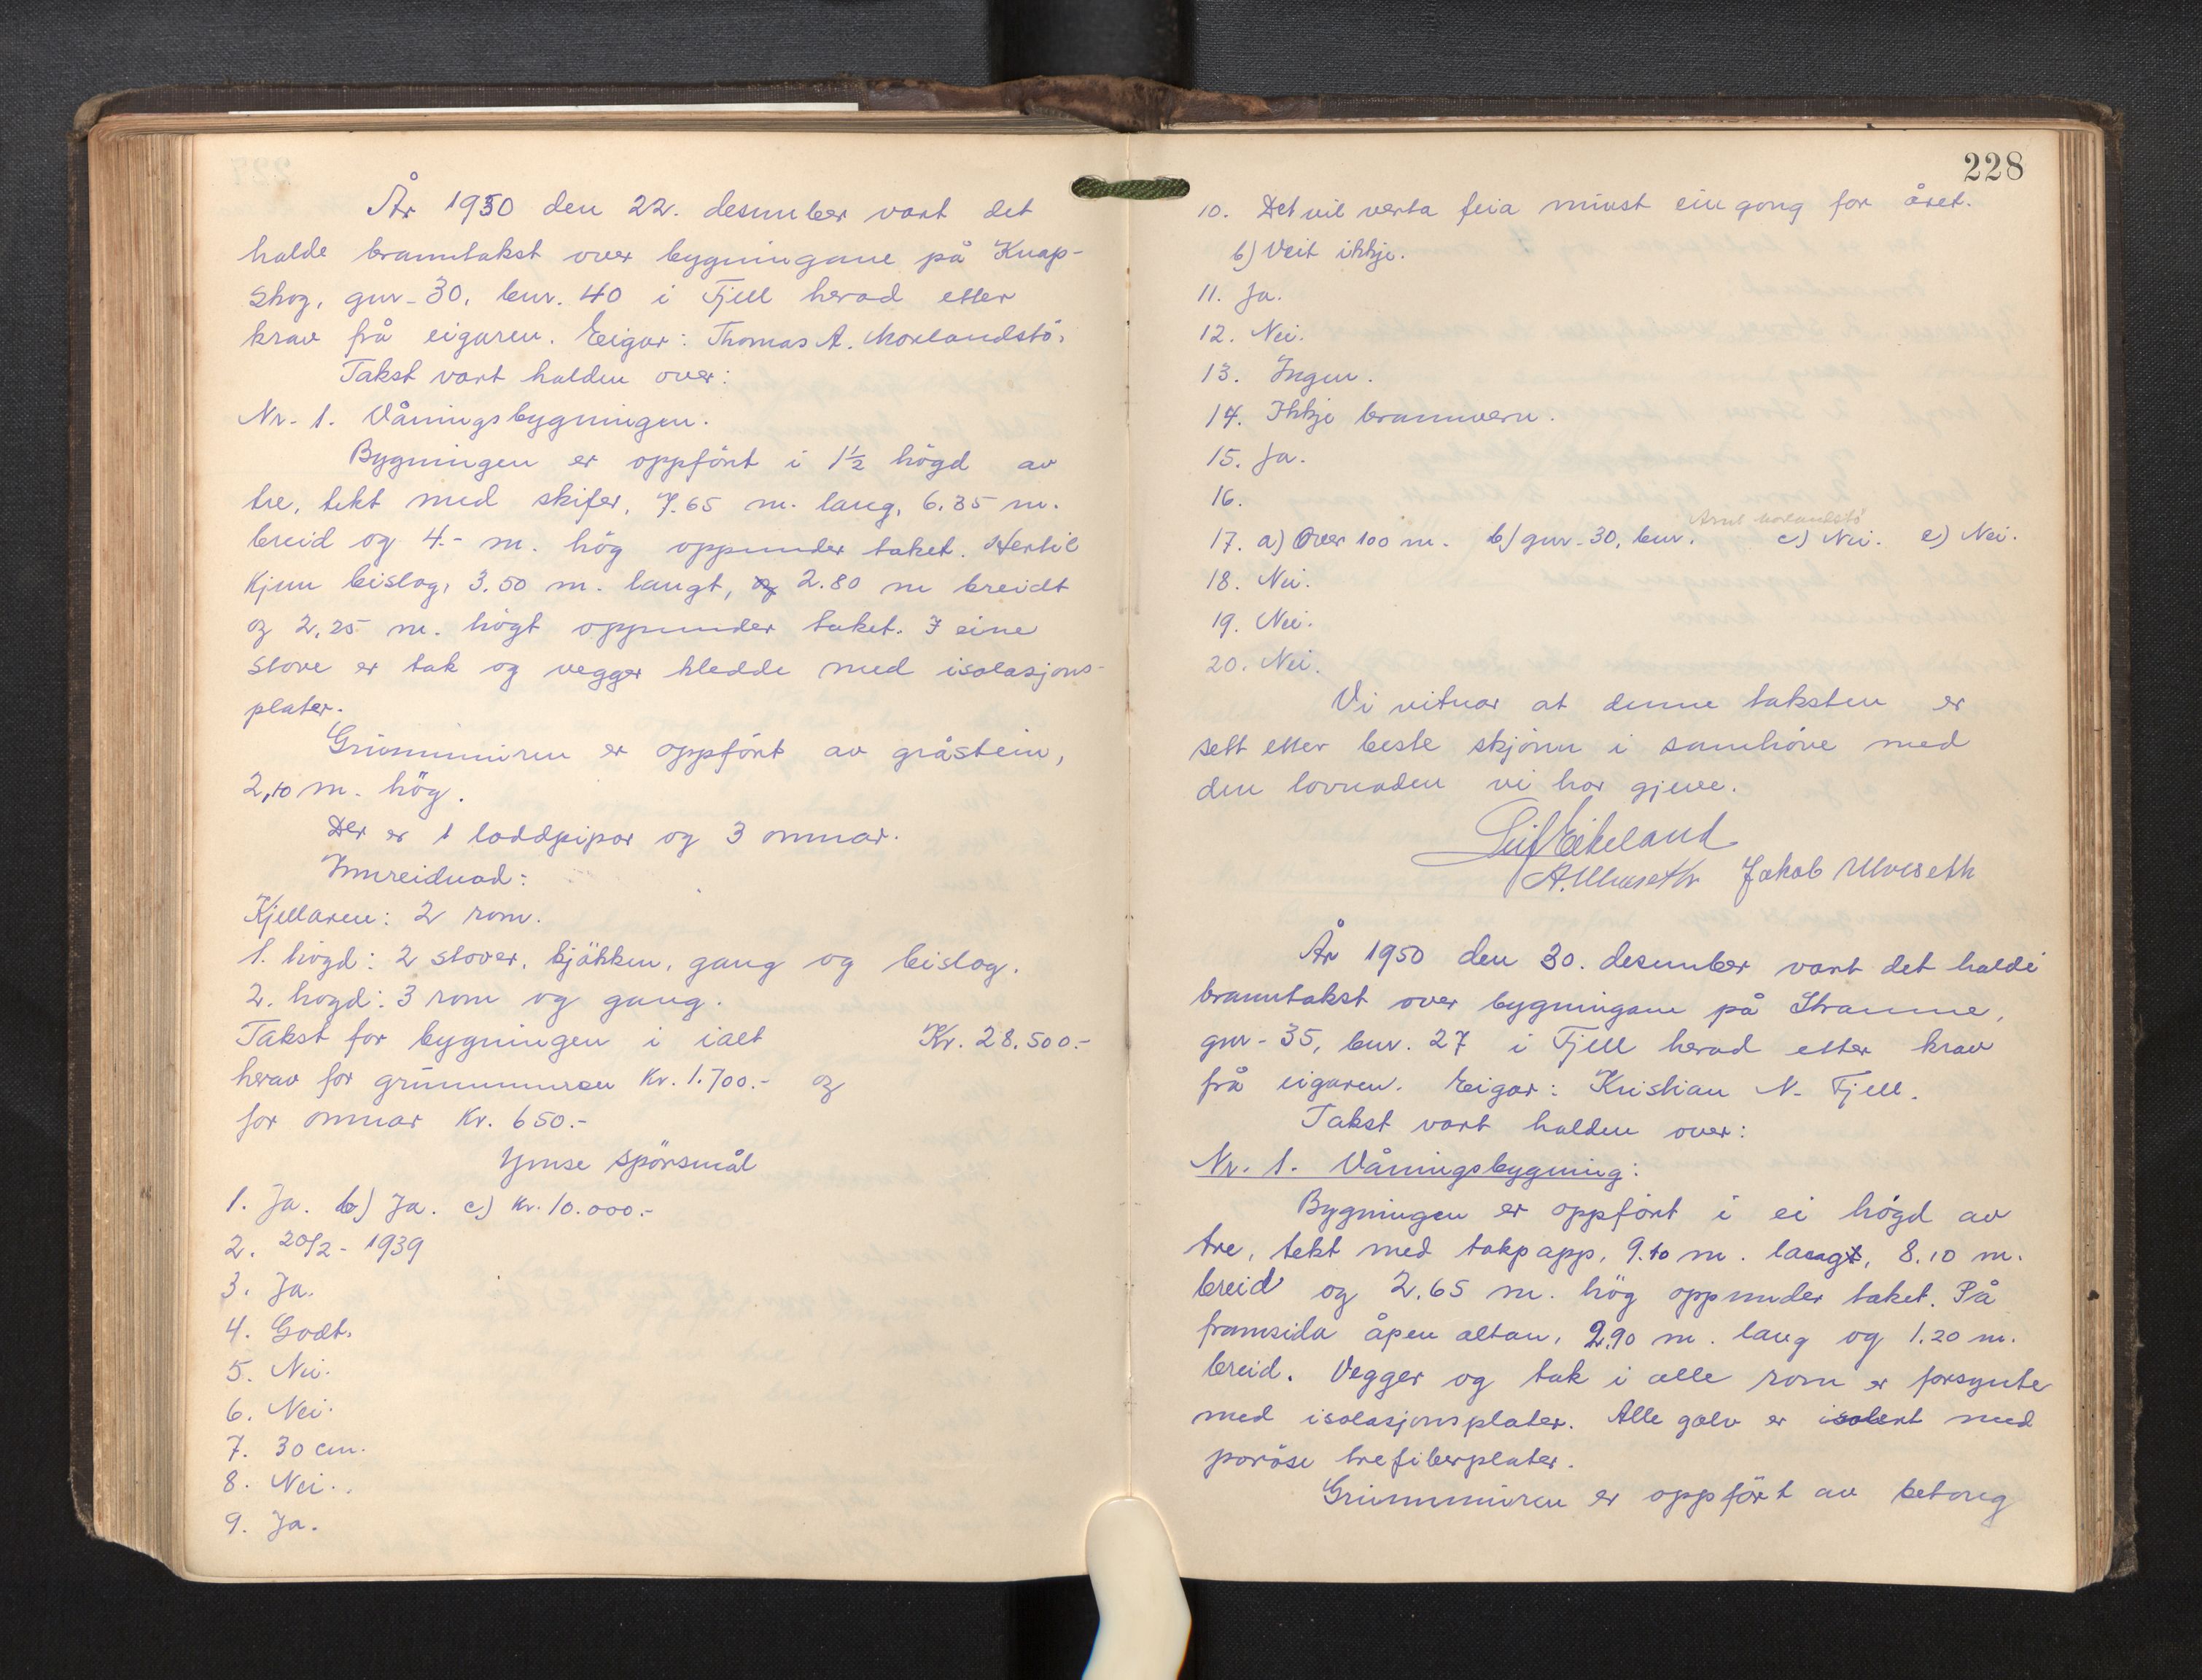 År 1950 den 22. desember vart det
halde branntakst over bygningane på Knap-
skog, gnr. 30, bnr. 40 i Fjell herad etter
krav frå eigaren. Eigar: Thomas A. Morlandstö.
Takst vart halden over:
Nr. 1. Våningsbygningen.
Bygningen er oppfört i 1½ högd av
tre, tekt med skifer, 7.65 m. lang, 6.35 m.
breid og 4.- m. hög oppunder taket. Hertil
kjem bislag, 3.50 m. langt, og 2.80 m breidt
og 2.25 m. högt oppunder taket. I eine
stove er tak og vegger kledde med isolasjons-
plater.
Grunnmuren er oppfört av gråstein,
2,10 m. hög.
Der er 1 loddpipor og 3 omnar.
Innreidnad:
Kjellaren: 2 rom.
1. högd: 2 stover, kjökken, gang og bislag.
2. högd: 3 rom og gang.
Takst for bygningen i ialt Kr. 28.500.-
herav for grunnmuren Kr. 1.700.- og
for omnar Kr. 650.-
Ymse spörsmål
1. Ja. b) Ja. c) Kr. 10.000.-
2. 20/2 - 1939
3. Ja.
4. Godt.
5. Nei.
6. Nei.
7. 30 cm.
8. Nei.
9. Ja.
228
10. Det vil verta feia minst ein gong for året.
b) Veit ikkje.
11. Ja.
12. Nei.
13. Ingen.
14. Ikkje brannvern.
15. Ja.
16.
Arnt Morlandstö
17. a) Over 100 m. b) gnr. 30, bnr. c) Nei. e) Nei.
18. Nei.
19. Nei.
20. Nei.
Vi vitnar at denne taksten er
sett etter beste skjönn i samhöve med
den lovnaden vi har gjeve.
Leif Eikeland
A. Ulveseth Jakob Ulveseth
År 1950 den 30. desember vart det halde
branntakst over bygningane på Straume,
gnr. 35, bnr. 27 i Fjell herad etter krav
frå eigaren. Eigar: Kristian N. Fjell.
Takst vart halden over:
Nr. 1. Våningsbygning:
Bygningen er oppfört i ei högd av
tre, tekt med takpapp, 9.10 m. lang, 8.10 m.
breid og 2.65 m. hög oppunder taket. På
framsida åpen altan, 2.90 m. lang og 1.20 m.
breid. Vegger og tak i alle rom er forsynte
med isolasjonsplater. Alle golv er isolert med
poröse trefiberplater.
Grunnmuren er oppfört av betong